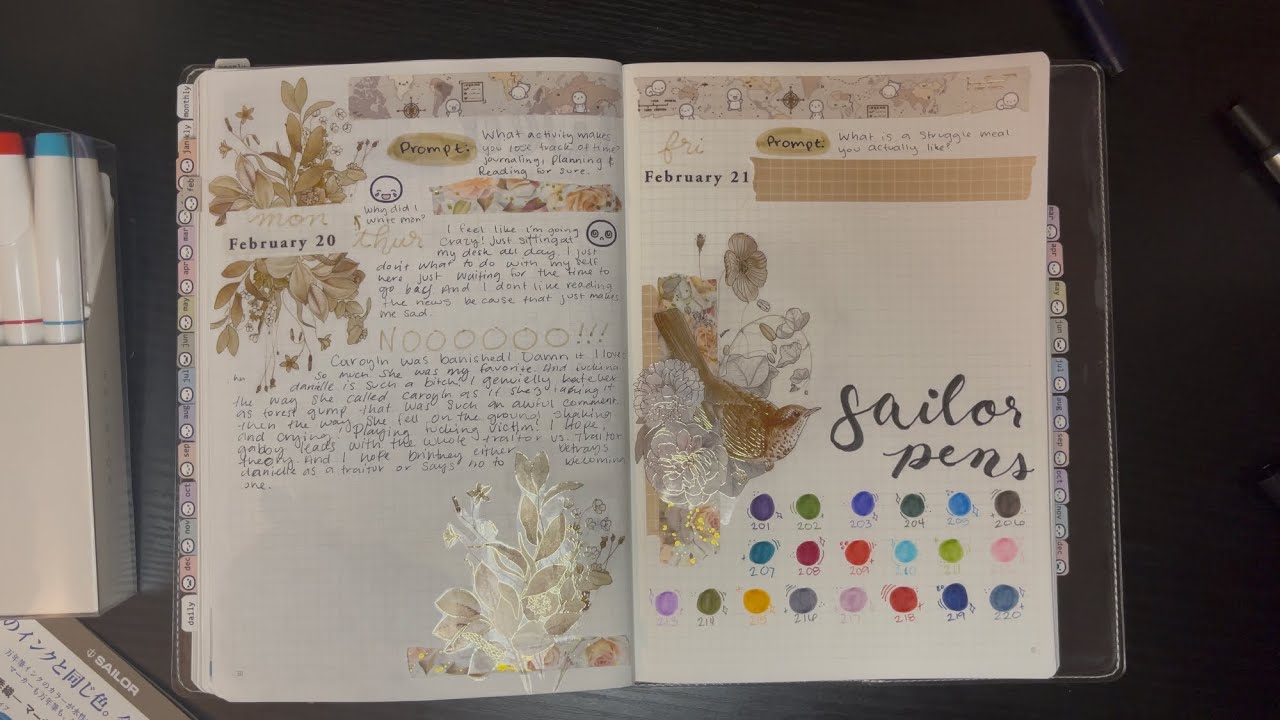 monthly
jan
feb
mar
apr
may
jun
jul
aug
sep
oct
nov
dec
daily
Prompt:
What activity makes
you lose track of time?
Journaling, Planning &
Reading for sure.
mon
Why did I
write mon?
February 20
thur
I feel like I'm going
crazy! Just sitting at
my desk all day. I just
don't what to do with my self
here just waiting for the time to
go back. And I dont like reading
the news because that just makes
me sad.
NOOOOOO!!!
Carogln was banished! Damn it I love
so much she was my favorite. And fucking
danielle is such a bitch! I genuielly hate her
the way she called Carogln as if she
as forest gump that was such an awful comment.
then the way she fell on the ground shaking
and crying, Playing fucking victim! I hope,
gabby leads with the whole traitor vs. Traitor
theory. And I hope britney either betrays
danielle as a traitor or says no to becoming
one.
fri
Prompt:
What is a struggle meal
you actually like?
February 21
sailor
pens
201 202 203 204 205 206
207 208 209 210 211
213 214 215 216 217 218 219 220
mar
apr
may
jun
jul
aug
sep
oct
nov
dec
のインクと同じ色。
SAILOR